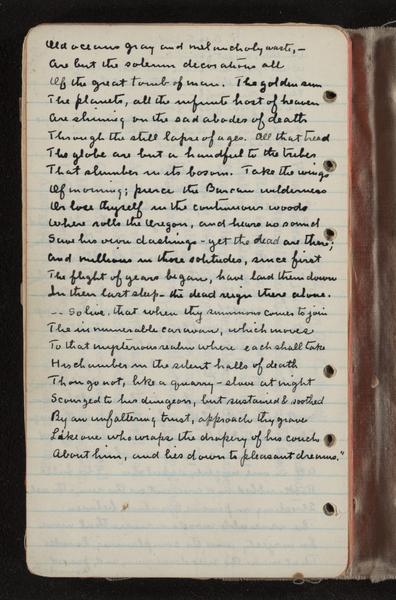 Old oceans gray and melancholy waste, -
Are but the solemn decorations all
Of the great tomb of man. The golden sun
The planets, all the infinite host of heaven
Are shining on the sad abodes of death
Through the still lapse of ages. All that tread
The globe are but a handful to the tribes
That slumber in its bosom. Take the wings
Of morning; pierce the Barcan wilderness
Or lose thyself in the continuous woods
Where rolls the Oregon, and hears no sound
Save his own dashings - yet the dead are there;
And millions in those solitudes, since first
The flight of years began, have laid them down
In their last sleep - the dead reign there alone.
-- So live, that when thy summons comes to join
The innumerable caravan, which moves
To that mysterious realm where each shall take
His chamber in the silent halls of death
Thou go not, like a quarry-slave at night
Scourged to his dungeon, but sustained & soothed
By an unfaltering trust, approach thy grave
Like one who wraps the drapery of his couch
About him, and lies down to pleasant dreams."